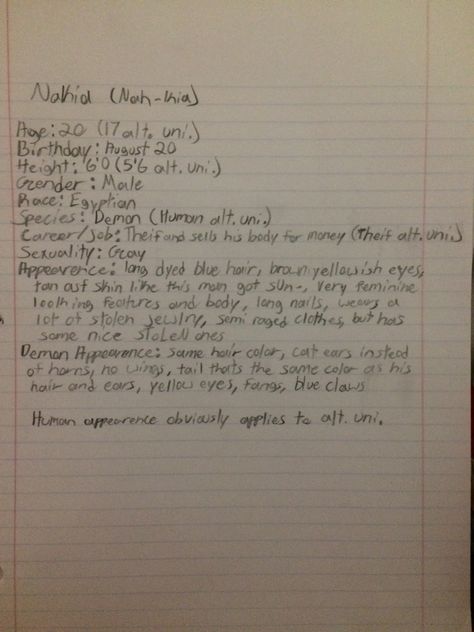 Nakia (Nah-kia)
Age: 20 (17 alt. uni.)
Birthday: August 20
Height: '6'0 (5'6 alt. uni.)
Gender: Male
Race: Egyptian
Species: Demon (Human alt. uni.)
Career/Job: Theif and sells his body for money (Theif alt. uni.)
Sexuality: Gay
Appearence: long dyed blue hair, brown-yellowish eyes,
tan asf skin like this man got sun-, very feminine
looking features and body, long nails, wears a
lot of stolen jewlry, semi raged clothes, but has
some nice stolen ones
Demon Appearence: same hair color, cat ears instead
of horns, no wings, tail thats the same color as his
hair and ears, yellow eyes, fangs, blue claws
Human appearence obviously applies to alt. uni.